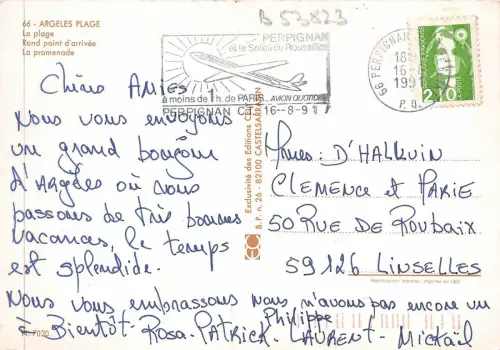 B 53823
66 - ARGELES PLAGE
La plage
Rond point d'arrivée
La promenade
PERPIGNAN
et le Soleil du Roussillon
à moins de 1 h. de PARIS.. AVION QUOTIDIEN
PERPIGNAN
16-8-91
66 PERPIGNAN
18
16-
199
P.O.
2,20
Chères AMIES
Nous vous envoyons
un grand bonjour
d'Argelès où nous
passons de très bonnes
vacances, le temps
est splendide.
Nous vous embrassons nous n'avons pas encore vu
Philippe
à Bientôt - Rosa - PATRICK - LAURENT - Mickaël
Mmes: D'HALLUIN
CLEMENCE et MARIE
50 RUE DE ROUBAIX
59126 LINSELLES
Exclusivité des Editions
B.P. n. 26 - 82100 CASTELSARRASIN
7020